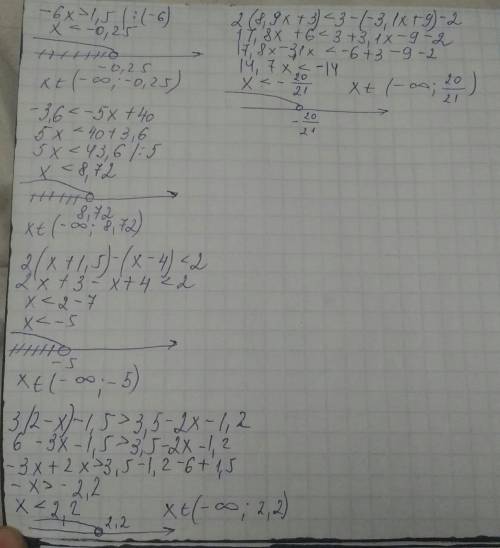 -6x>1,5 |:(-6)
x<-0,25
-0,25
x∈(-∞;-0,25)
-3,6<-5x+40
5x<40+3,6
5x<43,6 /:5
x<8,72
8,72
x∈(-∞; 8,72)
2(x+1,5)-(x-4)<2
2x+3-x+4<2
x<2-7
x<-5
-5
x∈(-∞;-5)
3(2-x)-1,5>3,5-2x-1,2
6-3x-1,5>3,5-2x-1,2
-3x+2x>3,5-1,2-6+1,5
-x>-2,2
x<2,2 x∈(-∞; 2,2)
2,2
2(8,9x+3)<3-(-3,1x+9)-2
17,8x+6<3+3,1x-9-2
17,8x-3,1x<-6+3-9-2
14,7x<-14
x<-20/21 x∈(-∞; 20/21)
-20/21